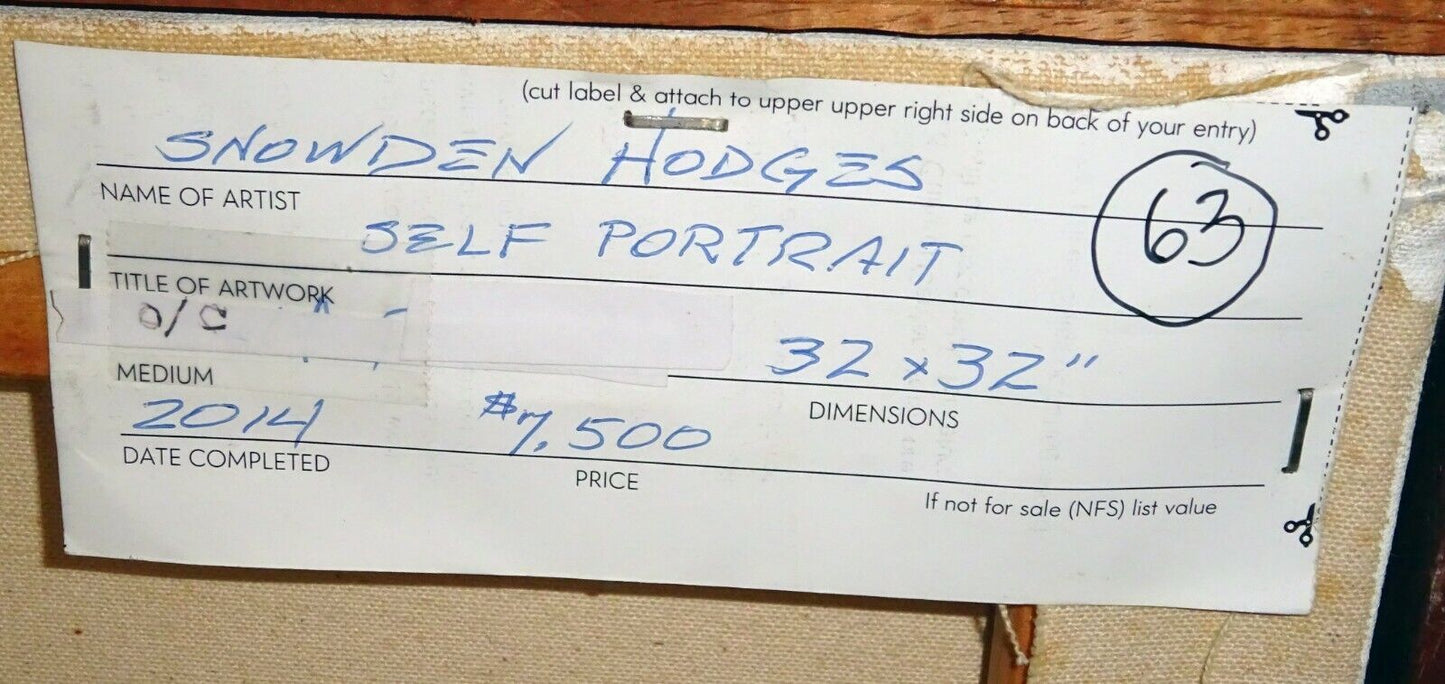 (cut label & attach to upper upper right side on back of your entry)
SNOWDEN HODGES
NAME OF ARTIST
63
SELF PORTRAIT
TITLE OF ARTWORK
O/C
32 x 32"
MEDIUM
DIMENSIONS
2014 $7,500
DATE COMPLETED
PRICE
If not for sale (NFS) list value